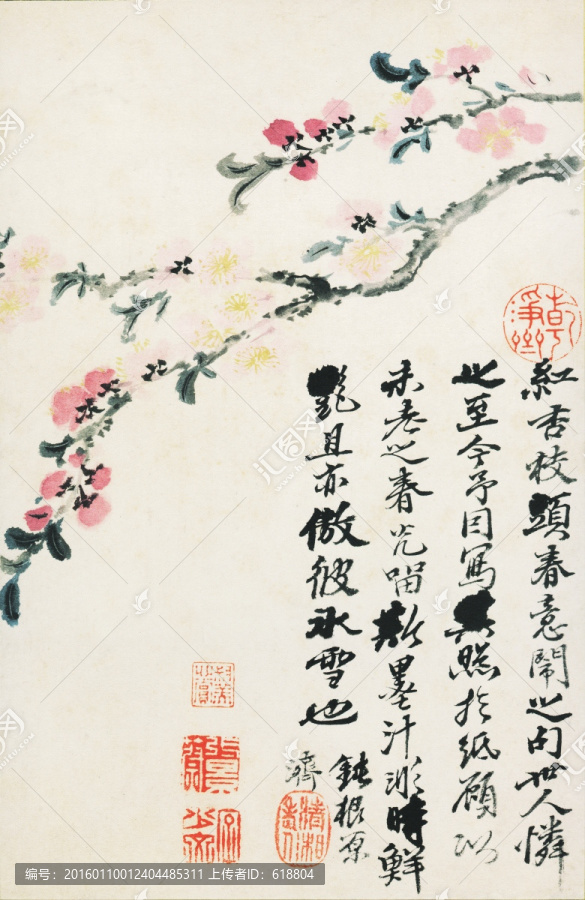 紅杏枝頭春意鬧之句世人憐
之至今予因寫其照於紙顧以
未老之春光留斯墨汁時鮮
艷且亦傲彼冰雪也
鈍根原
濟
编号：20160110012404485311 上传者ID：618804